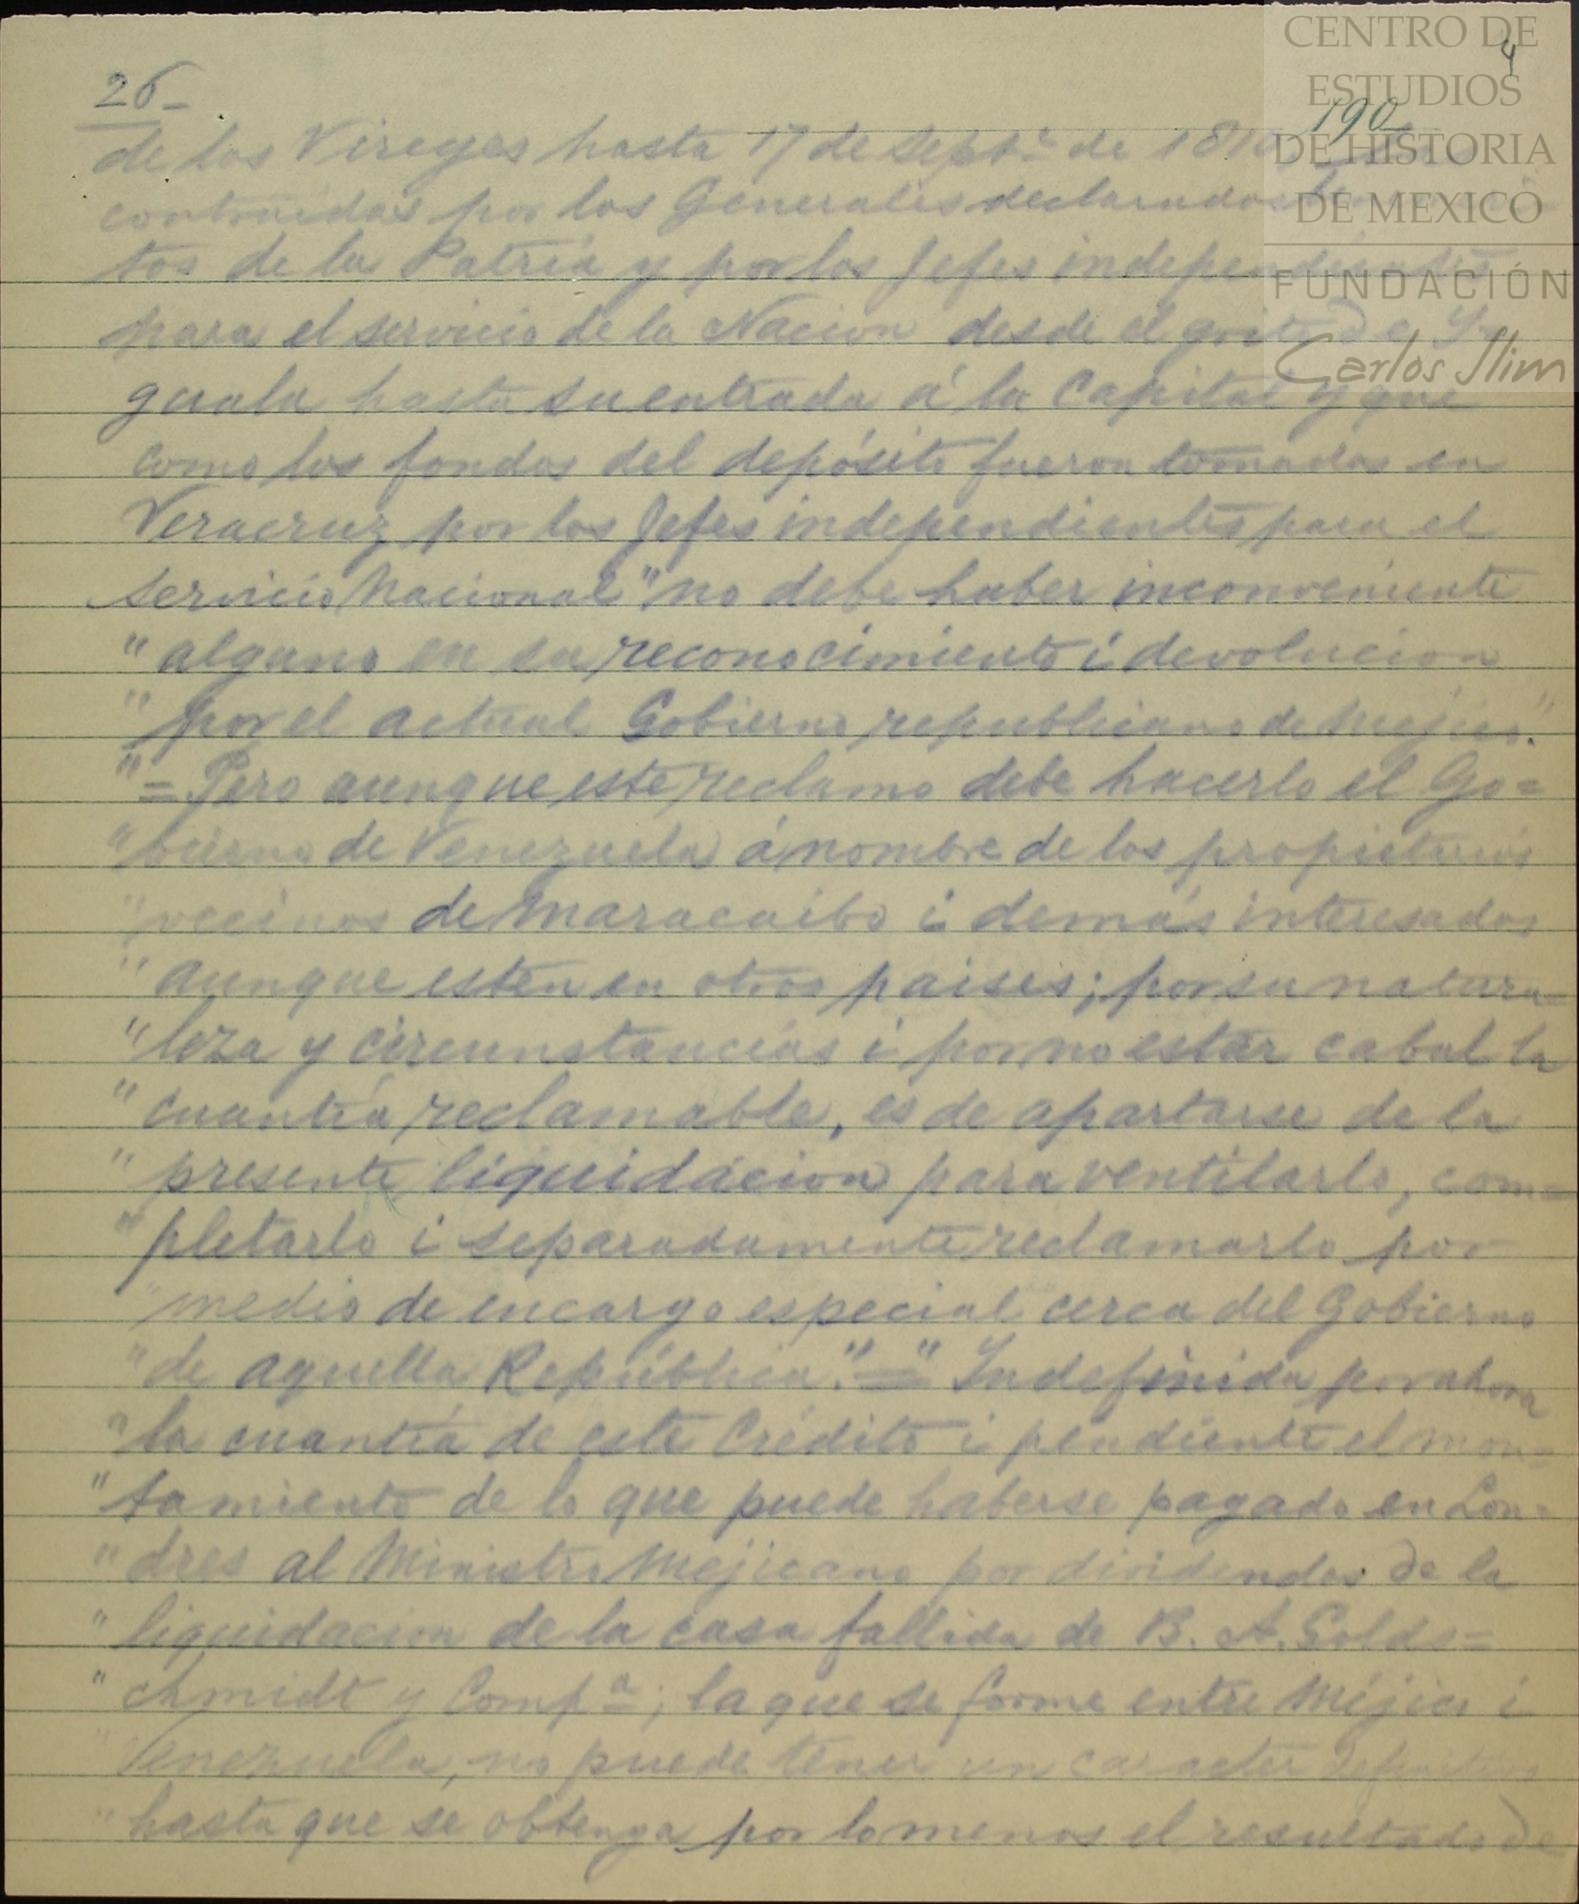 CENTRO DE
ESTUDIOS
DE HISTORIA
DE MEXICO
FUNDACIÓN
Carlos Slim
4
190
26-
de los Vireyes hasta 17 de Septe. de 1810
contraidas por los Generales declarados
tos de la Patria y por los Jefes independientes
para el servicio de la Nacion desde el grito de Y-
guala hasta su entrada á la Capital y que
como los fondos del depósito fueron tomados en
Veracruz por los Jefes independientes para el
servicio nacional "no debe haber inconveniente
" alguno en su reconocimiento i devolucion
" por el actual Gobierno republicano de Mejico."
"= Pero aunque este reclamo debe hacerlo el Go=
" bierno de Venezuela á nombre de los propietarios
" vecinos de Maracaibo i demás interesados
" aunque estén en otros paises; por su natura=
" leza y circunstancias i por no estar cabal la
" cuantía reclamable, es de apartarse de la
" presente liquidacion para ventilarlo, com=
" pletarlo i separadamente reclamarlo por
" medio de encargo especial cerca del Gobierno
" de aquella República." =" Indefinida por ahora
" la cuantía de este Crédito i pendiente el mon=
" tamiento de lo que puede haberse pagado en Lon=
" dres al Ministro Mejicano por dividendos de la
" liquidacion de la casa fallida de B. A. Golds=
" chmidt y Compa.; la que se forme entre Méjico i
" Venezuela, no puede tener un caracter definitivo
" hasta que se obtenga por lo menos el resultado de